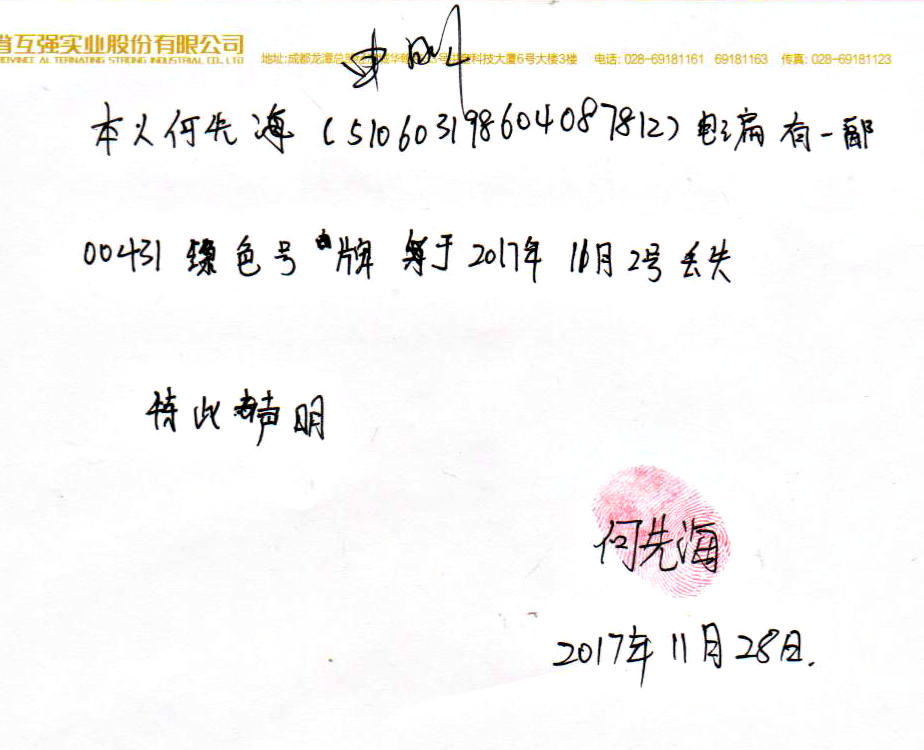 省互强实业股份有限公司
地址:成都龙潭总 科技大厦6号大楼3楼 电话: 028-69181161 69181163 传真: 028-69181123
本人何先海(510603198604087812)电 有一部
00431 绿色号牌 于2017年11月2号丢失
特此声明
何先海
2017年11月28日.